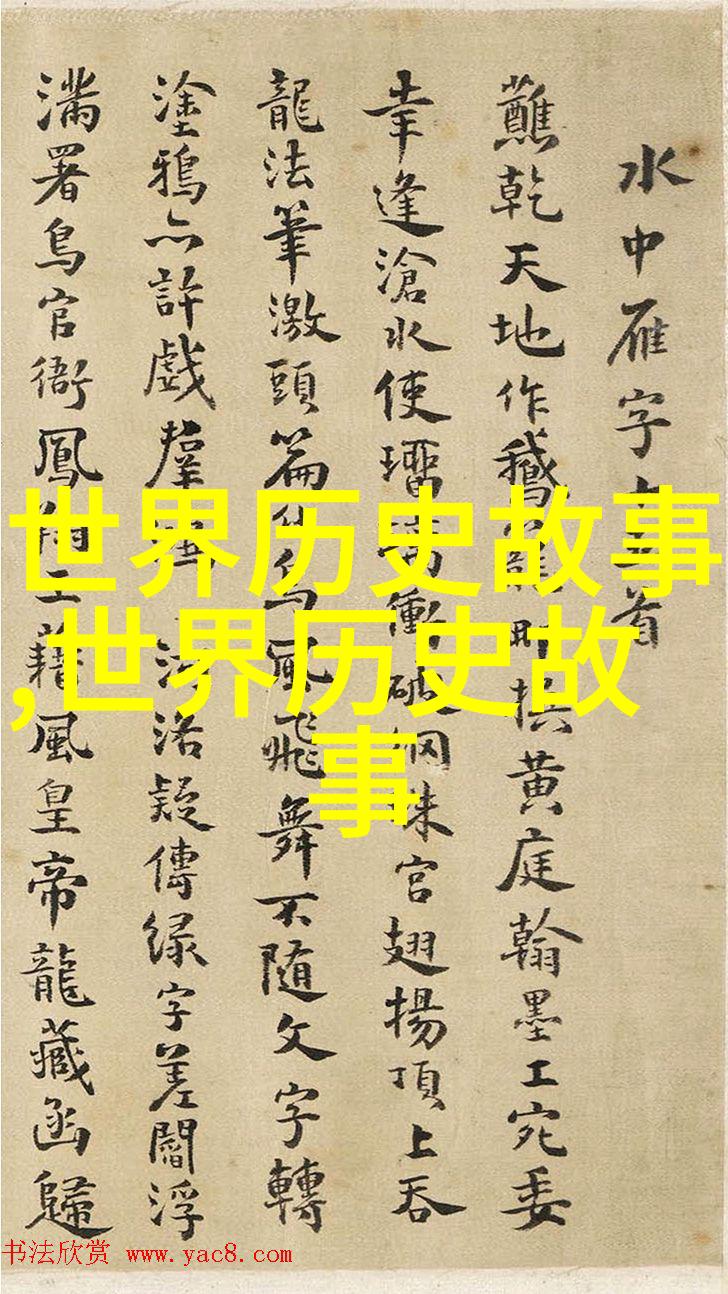 水中雁字首
蘸乾天地作鵝黄庭翰墨工宛委
幸逢滄水使衝破網珠宮翅揚頂上吞
龍法筆激頭篇鳥風飛舞不随文字轉
塗鴉亦許戲羣河洛疑傳緑字差閻浮
滿署鳥官衙鳳藉風皇帝龍藏函歸
世界历史故事
,世界历史故
事
书法欣赏 www.yac8.com